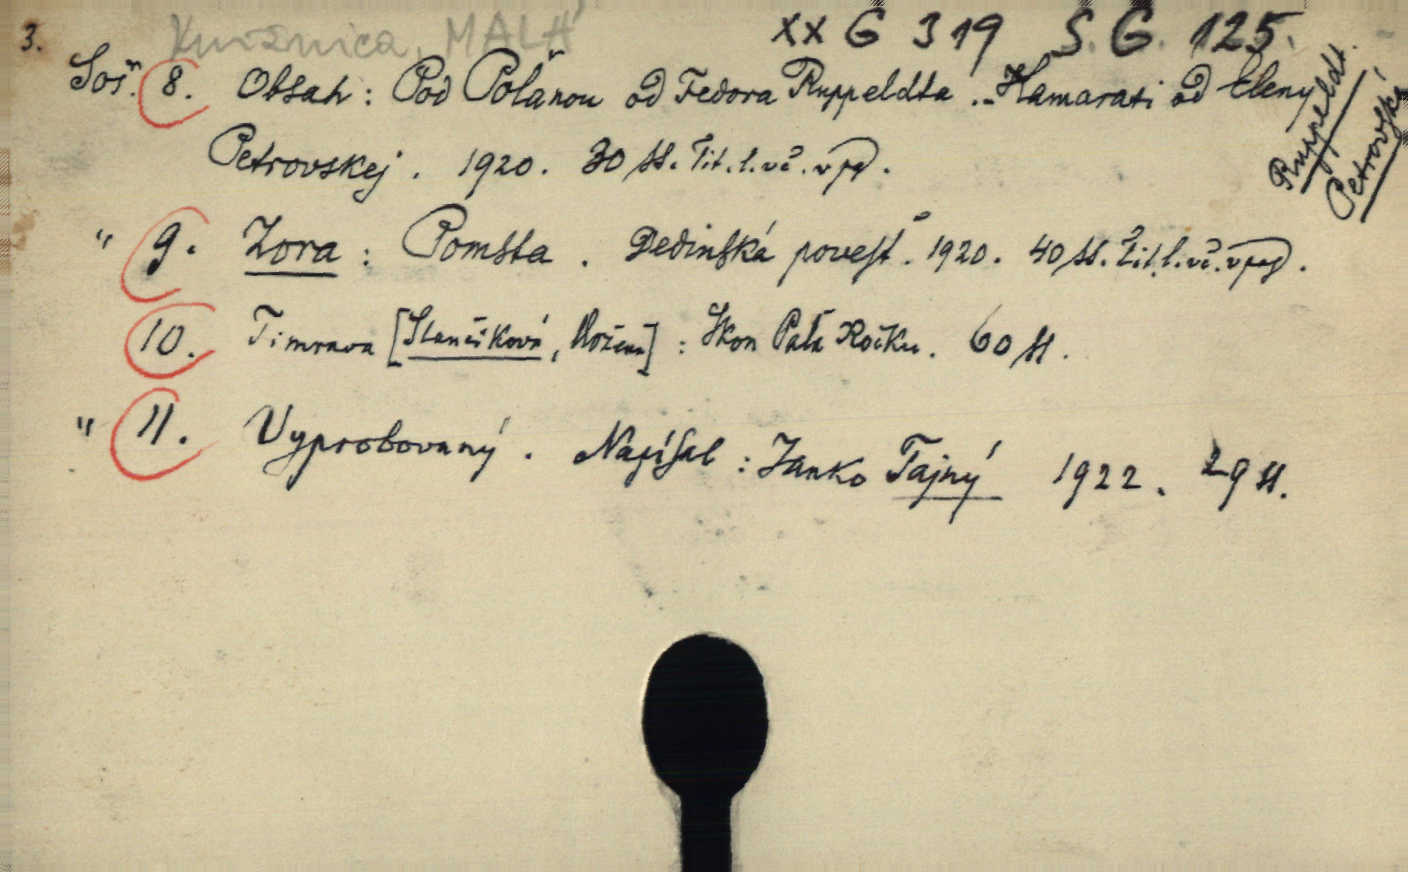 3. Knižnica, MALÁ XX G 319 S. G. 125.
Soš. 8. Obsah: Pod Polǎnou od Fedora Ruppeldta. - Kamarati od Eleny
Petrovskej. 1920. 30 ss. Tit. l. vč. v pag.
Ruppeldt.
Petrovská
" 9. Zora: Pomsta. Dedinská povesť. 1920. 40 ss. Tit. l. vč. v pag.
10. Timrava [Slančíková, Božena]: Skon Paľa Ročku. 60 ss.
" 11. Vyprobovaný. Napísal: Janko Tajný 1922. 29 ss.